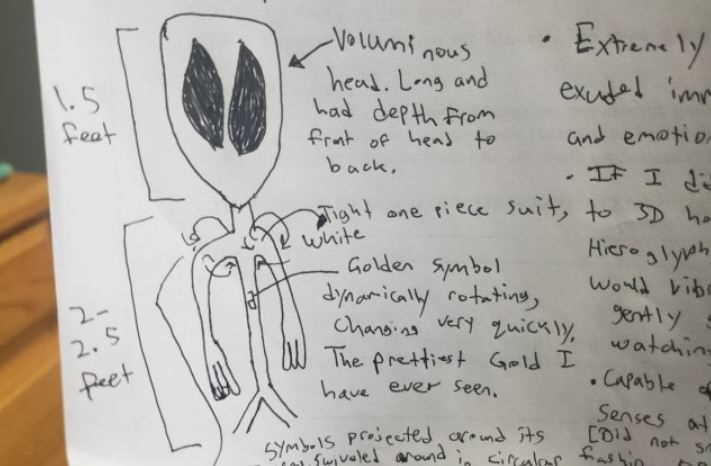 1.5
feet
Voluminous
head. Long and
had depth from
front of head to
back.
Tight one piece suit,
White
Golden symbol
dynamically rotating,
Changing very quickly.
The prettiest Gold I
have ever seen.
2-
2.5
feet
Symbols projected around its
swiveled around in circular fashion
• Extremely
exuded
and
• If I
to 3D
Would
gently
watching
• Capable
Senses at
[Did not